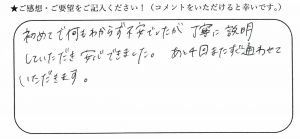 ★ご感想・ご要望をご記入ください！（コメントをいただけると幸いです。）
初めてで何もわからず不安でしたが 丁寧に説明
していただき安心できました。 あと4回またずに通わせて
いただきます。